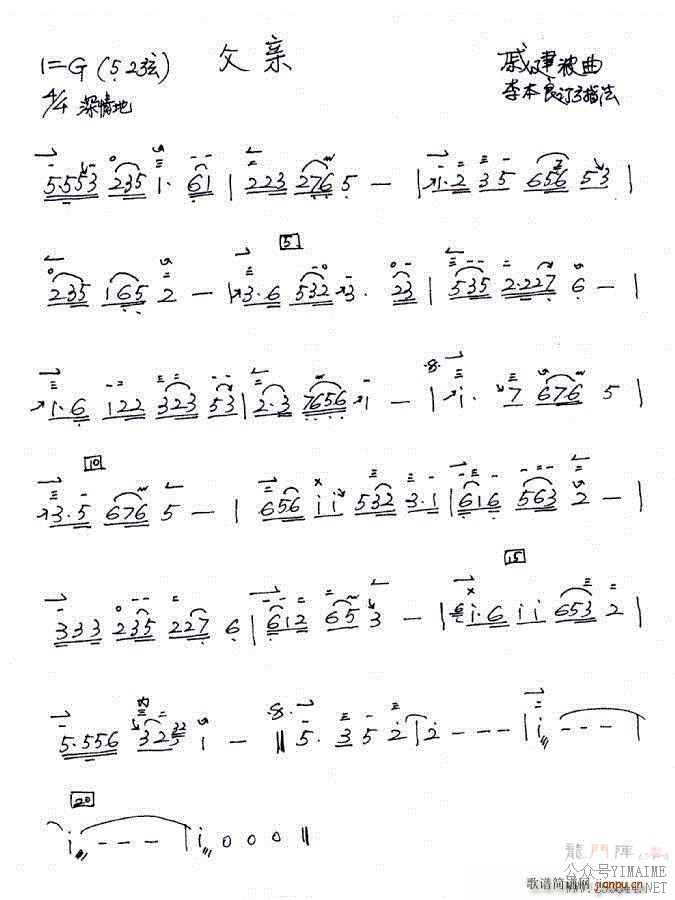 父亲
1=G (5 2弦)
4/4 深情地
戚建波曲
李本良订弓指法
5.553 235 1. 61 | 223 276 5 - | 1.2 35 656 53 |
5
235 165 2 - | 3.6 532 3. 23 | 535 2.227 6 - |
8
1.6 122 323 53 | 2.3 7656 1 - | i. 7 676 5 |
10
3.5 676 5 - | 656 ii 532 3.1 | 616 563 2 - |
15
333 235 227 6 | 612 65 3 - | i.6 ii 653 2 |
8
5.556 32 i - || 5. 3 5 2 | 2 - - - | i - - - |
20
i - - - | i 0 0 0 ||
龍門陣
公众号YIMAIME
歌谱简谱网
jianpu.cn